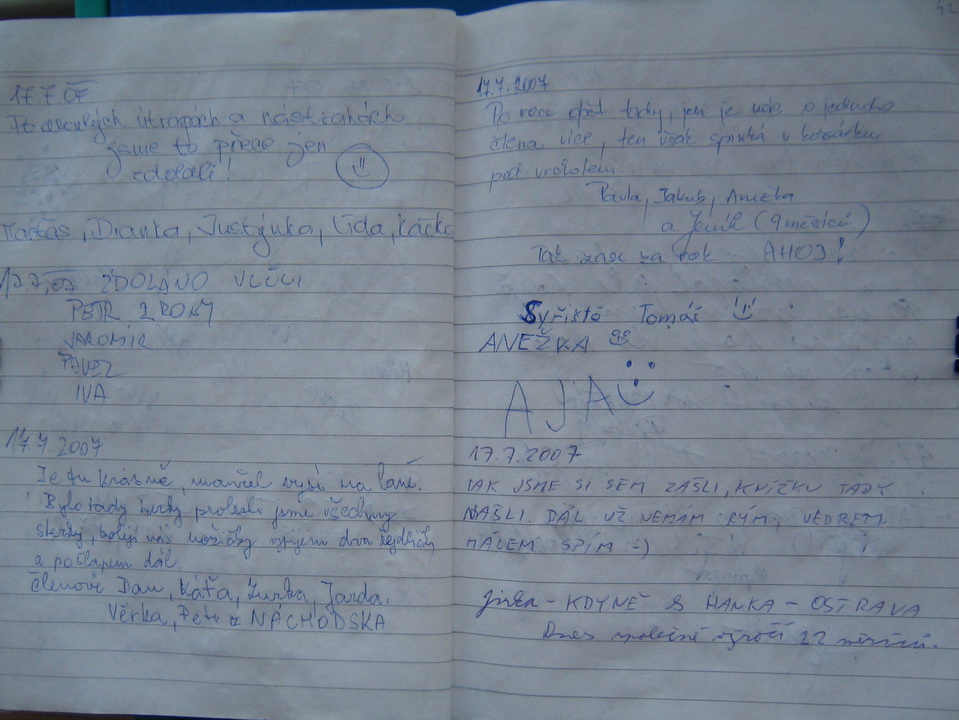 17.7.07
Po dlouhých útrapách a nástrahách
jsme to přece jen
zdolali!
Dianka, Justýnka, Lída, Kačka
17.7.07 ZDOLÁNO VLČICI
PETR 2 ROKY
JAROMÍR
PAVEL
IVA
17.7.2007
Je tu krásně, manžel visí na laně.
Bylo tady hezky prolezli jsme všechny
skály, bolí nás nožičky
a pošlapem dál.
Členové Dan, Káťa, Jarda.
Věrka, Petr z NÁCHODSKA
42
17.7.2007
Po roce opět tady, jen je nás o jednoho
člena více, ten však spinká v kočárku
pod vrcholem
Pavla, Jakub, Anežka
a Jeník (9 měsíců)
Tak zase za rok AHOJ!
Syřiště Tomáš
ANEŽKA
AJA
17.7.2007
TAK JSME SI SEM ZAŠLI, KNÍŽKU TADY
NAŠLI. DÁL UŽ NEMÁM RÝM, VEDREM
MÁLEM SPÍM :-)
Jirka - KDYNĚ & HANKA - OSTRAVA
Dnes společné výročí 22 měsíců.